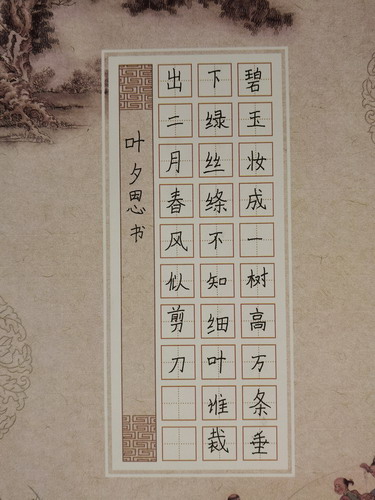 碧玉妆成一树高万条垂
下绿丝绦不知细叶谁裁
出二月春风似剪刀
叶夕思书